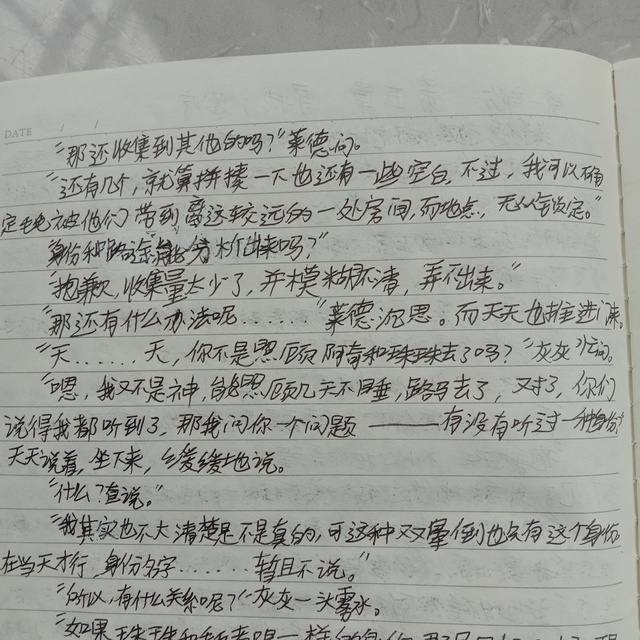 DATE / /
“那还收集到其他的吗？”莱德问。
“还有几个，就算拼接一下也还有一些空白，不过，我可以确
定毛毛被他们带到离这较远的一处房间，而地点，无法锁定。”
“身份和路途能分析出来吗？”
“抱歉，收集量太少了，并模糊不清，弄不出来。”
“那还有什么办法呢……”莱德沉思。而天天也推进门来。
“天……天，你不是照顾阿奇和珠珠去了吗？”灰灰忙问。
“嗯，我又不是神，能照顾几天不睡，路马去了，对了，你们
说得我都听到了，那我问你一个问题——有没有听过一种身份？”
天天说着，坐下来，缓缓地说。
“什么？查说。”
“我其实也不大清楚是不是真的，可这种又晕倒也只有这个身份
在当天才行，身份名字……暂且不说。”
“所以，有什么关系呢？”灰灰一头雾水。
“如果珠珠和
一样的身份